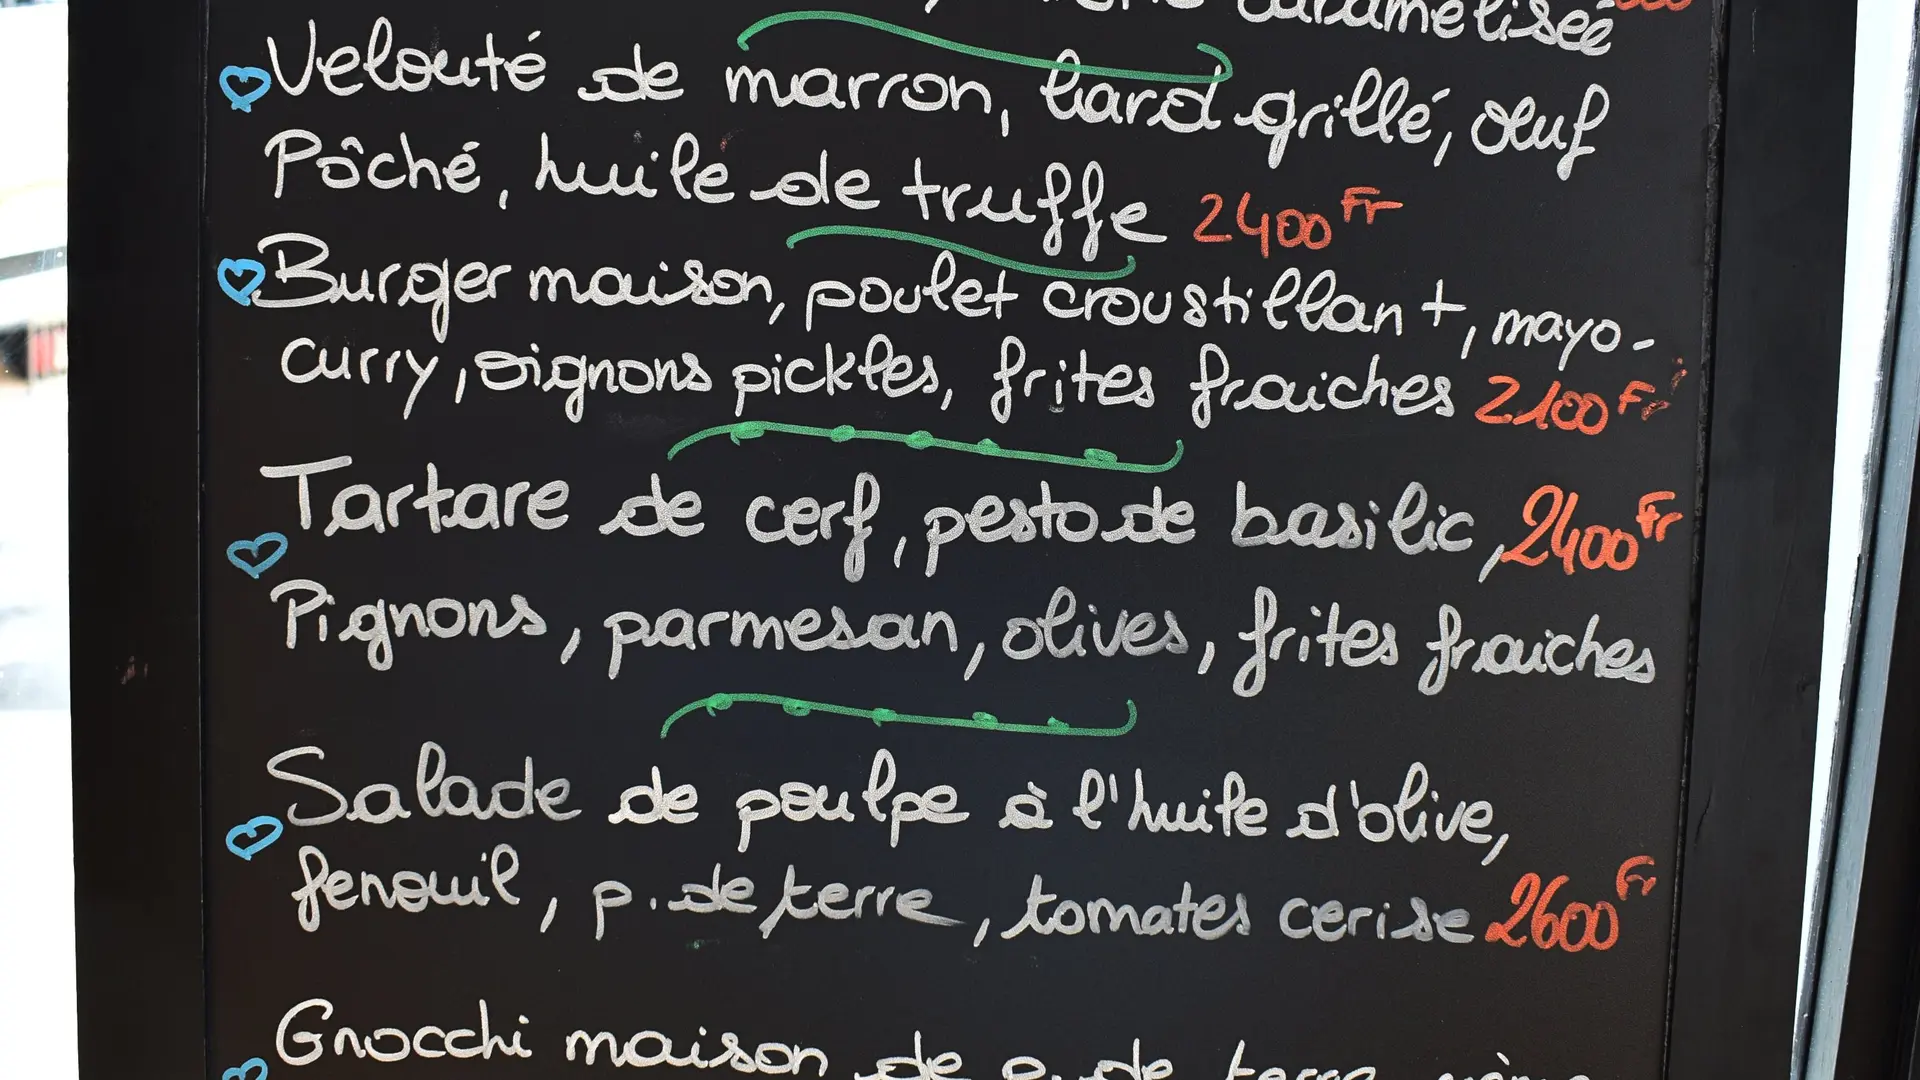 caramélisée
Velouté de marron, lard grillé, œuf
Pôché, huile de truffe 2400 Fr
Burger maison, poulet croustillant, mayo-
curry, oignons pickles, frites fraiches 2100 Fr
Tartare de cerf, pesto de basilic, 2400 Fr
Pignons, parmesan, olives, frites fraiches
Salade de poulpe à l'huile d'olive,
fenouil, p. de terre, tomates cerise 2600 Fr
Gnocchi maison de p. de terre